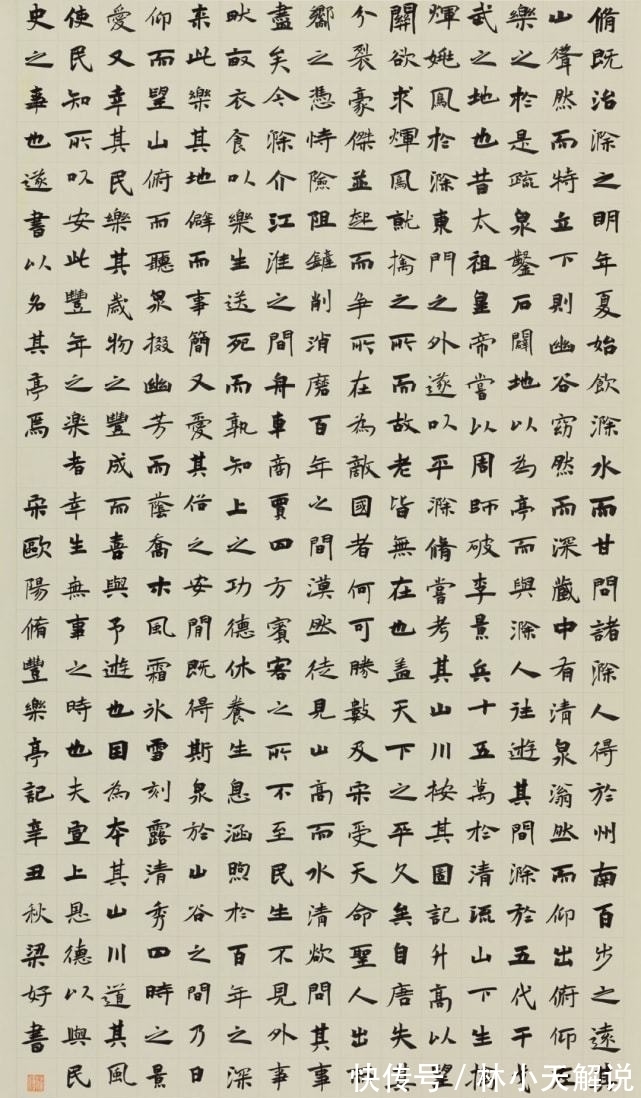 脩既治滁之明年夏始飲滁水而甘問諸滁人得於州南百步之遠其
山聳然而特立下則幽谷窈然而深藏中有清泉滃然而仰出俯仰左
樂之於是疏泉鑿石闢地以為亭而與滁人往遊其間滁於五代干戈
武之地也昔太祖皇帝嘗以周師破李景兵十五萬於清流山下生擒
煇姚鳳於滁東門之外遂以平滁脩嘗考其山川按其圖記升高以望
關欲求煇鳳就擒之所而故老皆無在也蓋天下之平久矣自唐失其
分裂豪傑並起而爭所在為敵國者何可勝數及宋受天命聖人出而
嚮之憑恃險阻鏟削消磨百年之間漠然徒見山高而水清欲問其事
盡矣今滁介江淮之間舟車商賈四方賓客之所不至民生不見外事
畎畝衣食以樂生送死而孰知上之功德休養生息涵煦於百年之深
来此樂其地僻而事簡又愛其俗之安閒既得斯泉於山谷之間乃日
仰而望山俯而聽泉掇幽芳而蔭喬木風霜冰雪刻露清秀四時之景
愛又幸其民樂其歲物之豐成而喜與予遊也因為本其山川道其風
使民知所以安此豐年之樂者幸生無事之時也夫宣上恩德以與民
史之事也遂書以名其亭焉 宋歐陽脩豐樂亭記辛丑秋梁好書
快传号/林小天解说